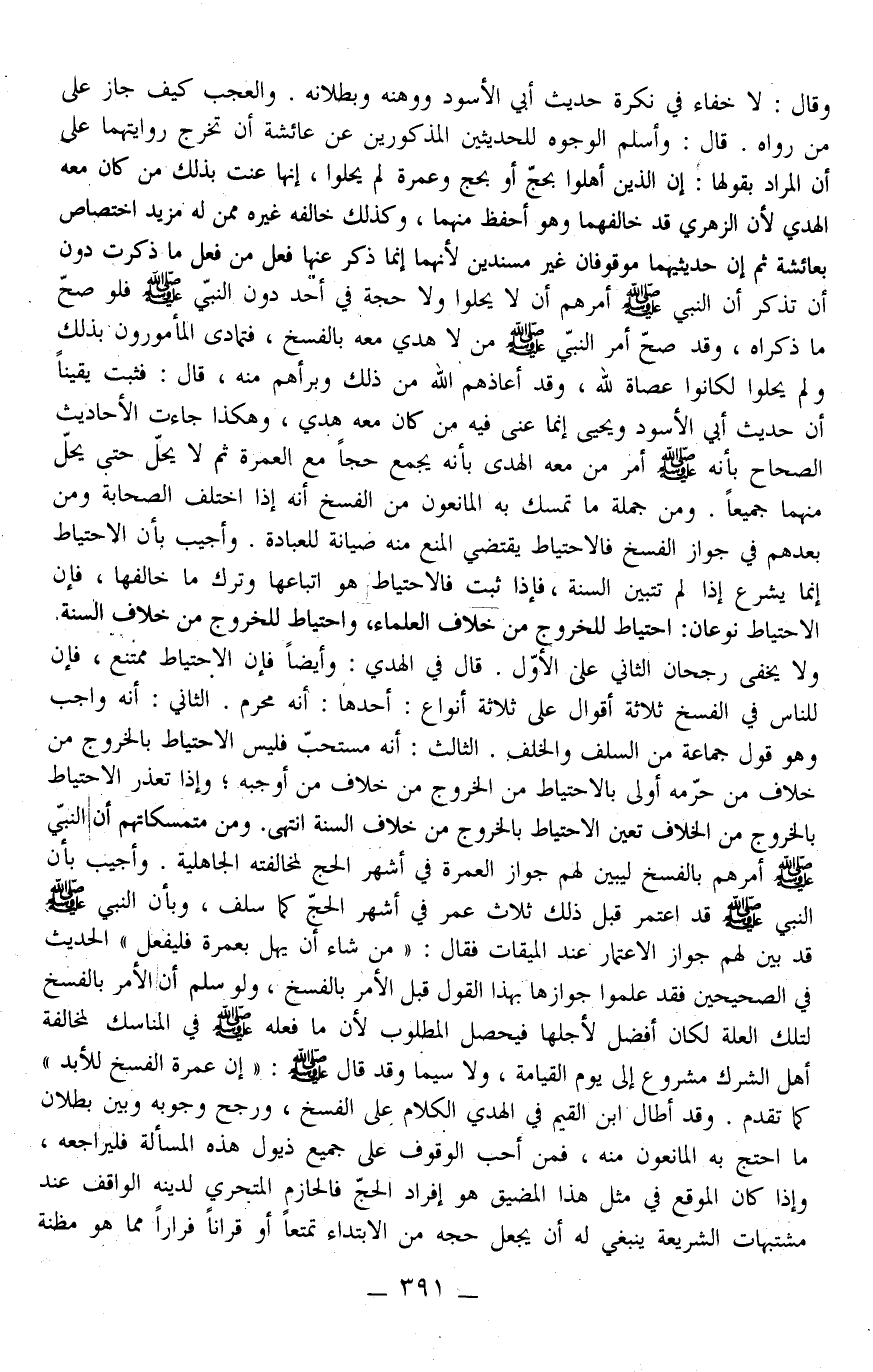 وقال : لا خفاء في نكرة حديث أبي الأسود ووهنه وبطلانه . والعجب كيف جاز على
من رواه . قال : وأسلم الوجوه للحديثين المذكورين عن عائشة أن تخرج روايتهما على
أن المراد بقولها : إن الذين أهلوا بحجّ أو بحج وعمرة لم يحلوا ، إنها عنت بذلك من كان معه
الهدي لأن الزهري قد خالفهما وهو أحفظ منهما ، وكذلك خالفه غيره ممن له مزيد اختصاص
بعائشة ثم إن حديثيهما موقوفان غير مسندين لأنهما إنما ذكر عنها فعل من فعل ما ذكرت دون
أن تذكر أن النبي ﷺ أمرهم أن لا يحلوا ولا حجة في أحد دون النبيّ ﷺ فلو صحّ
ما ذكراه ، وقد صحّ أمر النبيّ ﷺ من لا هدي معه بالفسخ ، فتمادى المأمورون بذلك
ولم يحلوا لكانوا عصاة لله ، وقد أعاذهم الله من ذلك وبرأهم منه ، قال : فثبت يقيناً
أن حديث أبي الأسود ويحيى إنما عنى فيه من كان معه هدي ، وهكذا جاءت الأحاديث
الصحاح بأنه ﷺ أمر من معه الهدى بأنه يجمع حجاً مع العمرة ثم لا يحلّ حتى يحلّ
منهما جميعاً . ومن جملة ما تمسك به المانعون من الفسخ أنه إذا اختلف الصحابة ومن
بعدهم في جواز الفسخ فالاحتياط يقتضي المنع منه صيانة للعبادة . وأجيب بأن الاحتياط
إنما يشرع إذا لم تتبين السنة ، فإذا ثبت فالاحتياط هو اتباعها وترك ما خالفها ، فإن
الاحتياط نوعان: احتياط للخروج من خلاف العلماء، واحتياط للخروج من خلاف السنة.
ولا يخفى رجحان الثاني على الأوّل . قال في الهدي : وأيضاً فإن الاحتياط ممتنع ، فإن
للناس في الفسخ ثلاثة أقوال على ثلاثة أنواع : أحدها : أنه محرم . الثاني : أنه واجب
وهو قول جماعة من السلف والخلف . الثالث : أنه مستحبّ فليس الاحتياط بالخروج من
خلاف من حرّمه أولى بالاحتياط من الخروج من خلاف من أوجبه ؛ وإذا تعذر الاحتياط
بالخروج من الخلاف تعين الاحتياط بالخروج من خلاف السنة انتهى. ومن متمسكاتهم أن النبيّ
ﷺ أمرهم بالفسخ ليبين لهم جواز العمرة في أشهر الحج لمخالفته الجاهلية . وأجيب بأن
النبي ﷺ قد اعتمر قبل ذلك ثلاث عمر في أشهر الحجّ كما سلف ، وبأن النبي ﷺ
قد بين لهم جواز الاعتمار عند الميقات فقال : « من شاء أن يهل بعمرة فليفعل » الحديث
في الصحيحين فقد علموا جوازها بهذا القول قبل الأمر بالفسخ ، ولو سلم أن الأمر بالفسخ
لتلك العلة لكان أفضل لأجلها فيحصل المطلوب لأن ما فعله ﷺ في المناسك لمخالفة
أهل الشرك مشروع إلى يوم القيامة ، ولا سيما وقد قال ﷺ : « إن عمرة الفسخ للأبد »
كما تقدم . وقد أطال ابن القيم في الهدي الكلام على الفسخ ، ورجح وجوبه وبين بطلان
ما احتج به المانعون منه ، فمن أحب الوقوف على جميع ذيول هذه المسألة فليراجعه ،
وإذا كان الموقع في مثل هذا المضيق هو إفراد الحجّ فالحازم المتحري لدينه الواقف عند
مشتبهات الشريعة ينبغي له أن يجعل حجه من الابتداء تمتعاً أو قراناً فراراً مما هو مظنة
_ ٣٩١ _